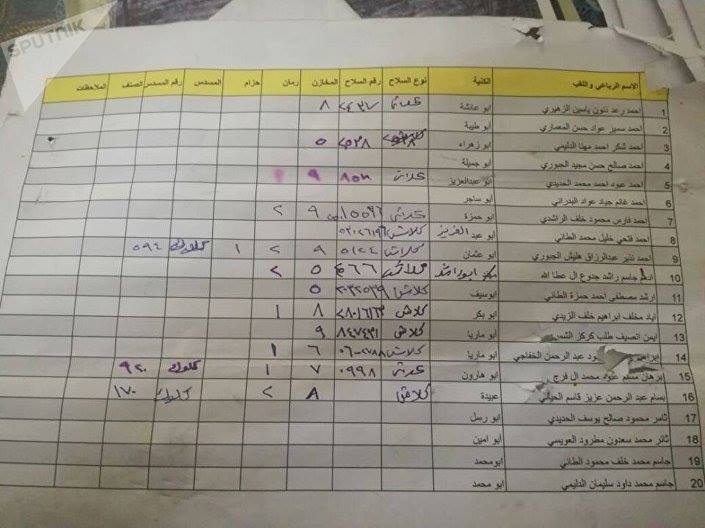 SPUTNIK
الاسم الرباعي واللقب الكنية نوع السلاح رقم السلاح المخازن رمان حزام المسدس رقم المسدس الصنف الملاحظات
1 احمد رعد ذنون ياسين الزهيري ابو عائشة ٨
2 احمد سمير عواد حسن المعماري ابو طيبة
3 احمد شكر احمد مهنا الدليمي ابو زهراء ٥
4 احمد صالح حسن مجيد الجبوري ابو جميلة
5 احمد عبود احمد محمد الحديدي ابو عبدالعزيز ٩
6 احمد غانم جياد عواد البدراني ابو ساجر
7 احمد فارس محمود خلف الراشدي ابو حمزة ٩ ٢
8 احمد فتحي خليل محمد الطائي ابو عبد العزيز كلاش
9 احمد نذير عبدالرزاق هليش الجبوري ابو عثمان كلاش ٥١٢٤ ٩ ٢ ١ كلوك ٥٩٤
10 ادهم جاسم راشد جدوع ال عطا الله كلاش ٥ ٢
11 ارشد مصطفى احمد حمزة الطائي ابوسيف كلاش ٥
12 اياد مخلف ابراهيم خلف الزيدي ابو بكر كلاش ٨ ١
13 ايمن نصيف طلب كركز ابو ماريا كلاش ٨٤٧٤٣١ ٩
14 عبد الرحمن الخفاجي ابو ماريا كلاش ٦ ١
15 برهان مسلم عبود محمد ال فرج ابو هارون ٠٩٩٨ ٧ ١ كلوك ٩٢٠
16 بسام عبد الرحمن عزيز قاسم الحيالي عبيدة كلاش ٨ ٢ كلوك ١٧٠
17 ثامر محمود صالح يوسف الحديدي ابو رسل
18 ثائر محمد سعدون مطرود العويسي ابو امين
19 جاسم محمد خلف محمود الطائي ابو محمد
20 جاسم محمد داود سليمان الدليمي ابو محمد